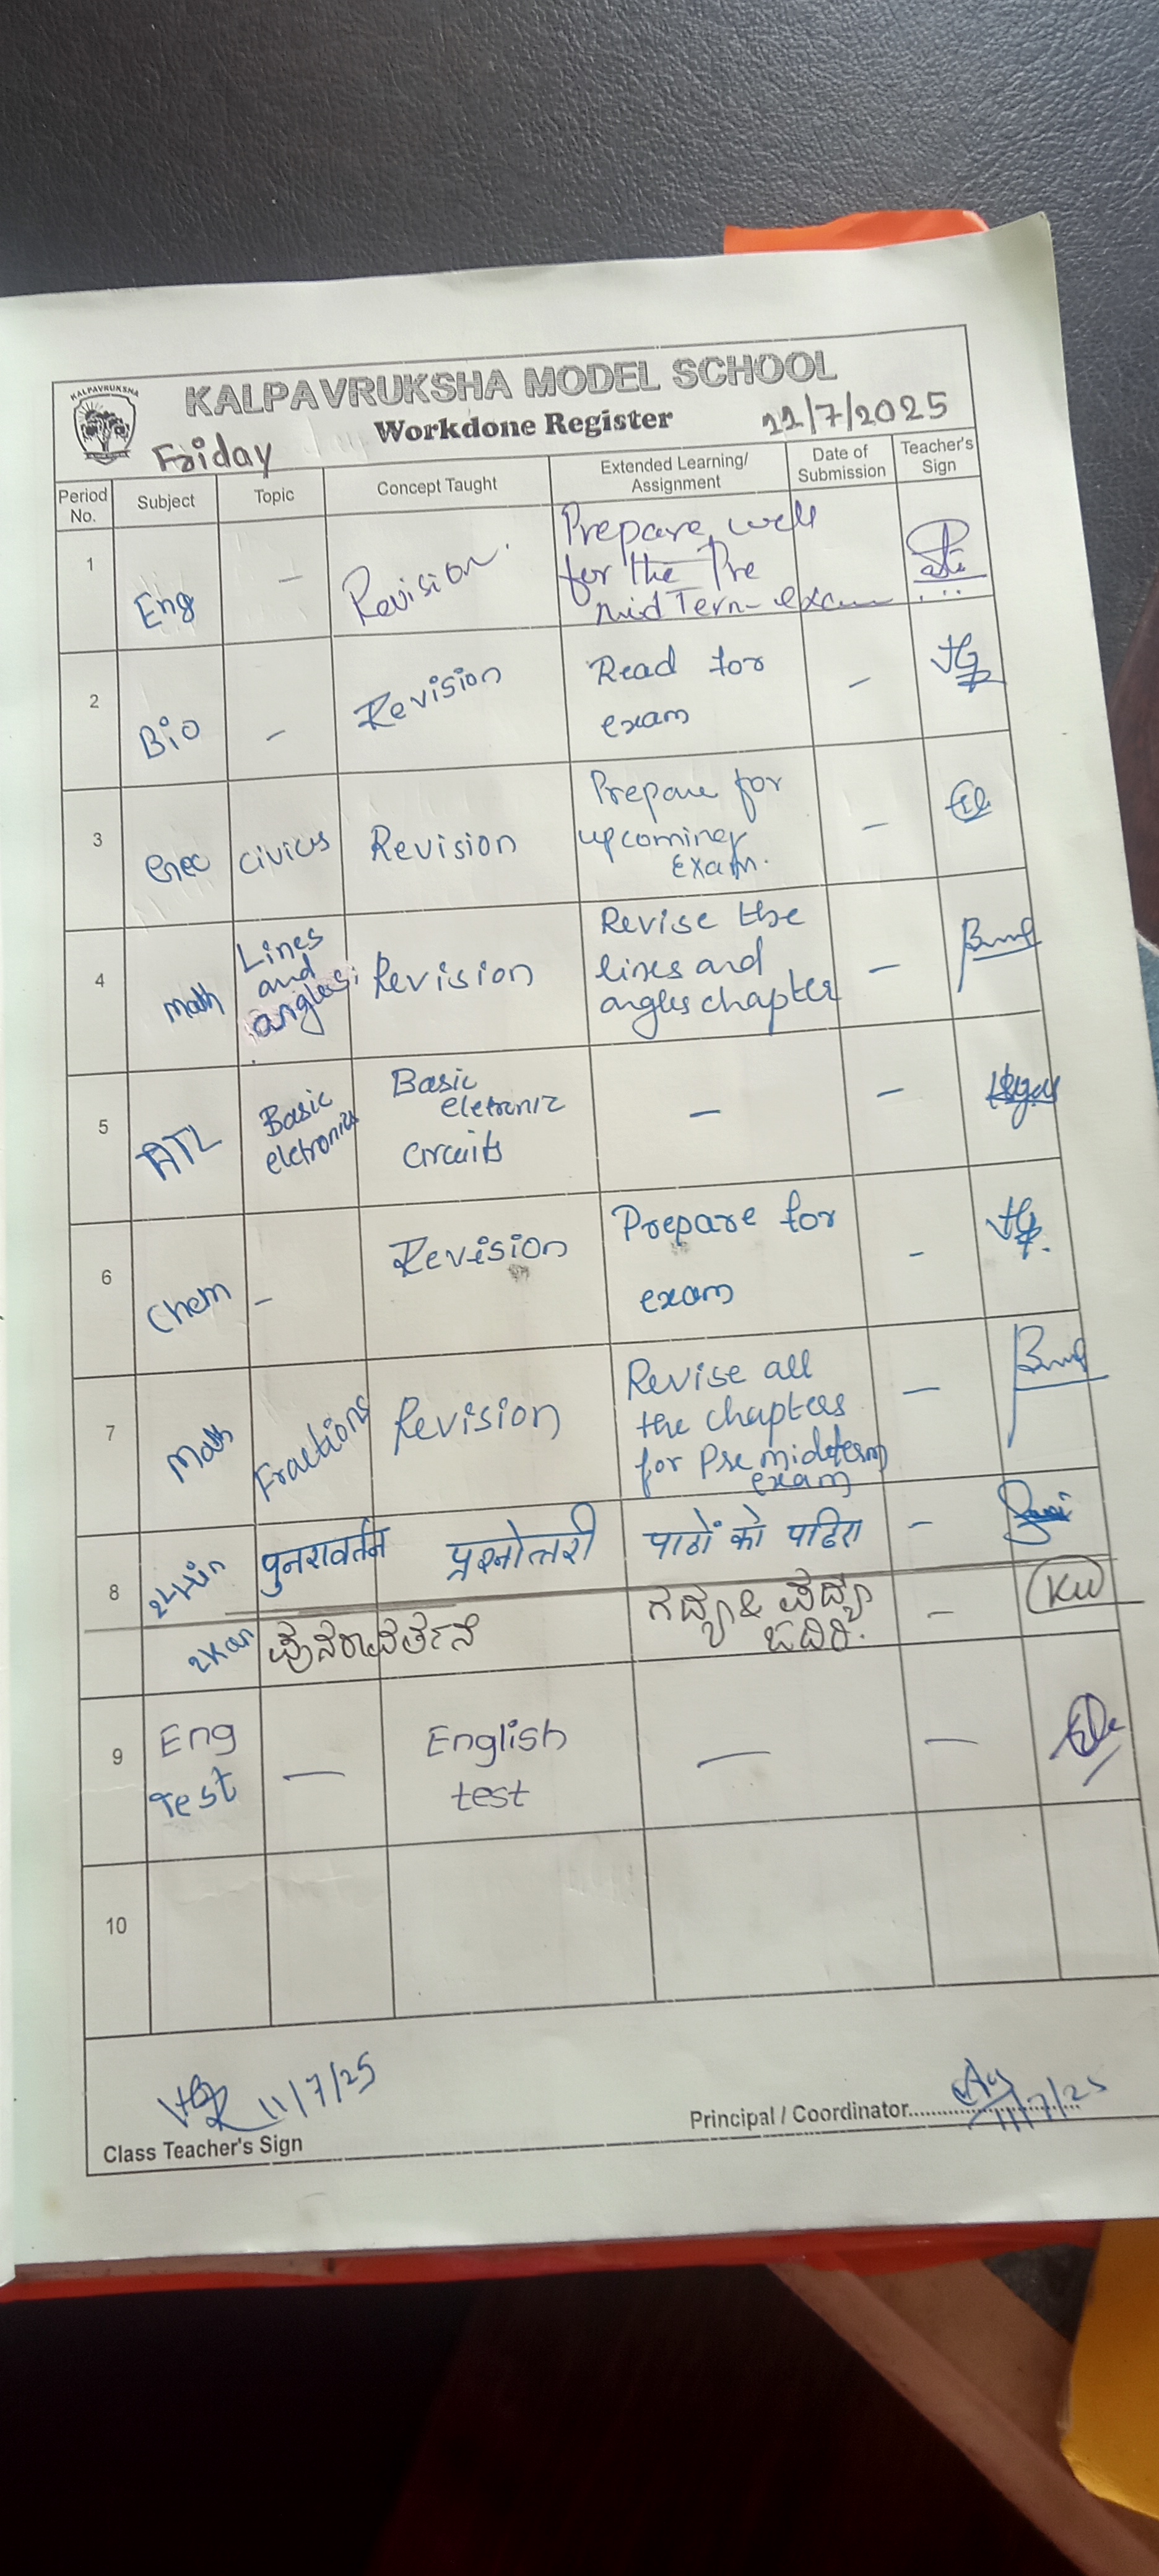 KALPAVRUKSHA
KALPAVRUKSHA MODEL SCHOOL
Workdone Register
Friday
11/7/2025
Period No. Subject Topic Concept Taught Extended Learning/ Assignment Date of Submission Teacher's Sign
1 Eng - Revision. Prepare well
for the Pre
mid Term exam
2 Bio - Revision Read for
exam -
3 civics Revision Prepare for
upcoming
Exam. -
4 Math Lines
and
angles: Revision Revise the
lines and
angles chapter -
5 ATL Basic
elctronics Basic
eletronic
circuits - -
6 Chem - Revision Prepare for
exam -
7 Math Fractions Revision Revise all
the chapters
for Pre midterm
exam -
8 2Hin पुनरावर्तन प्रश्नोत्तरी पाठों को पढिए -
2Kan ಪುನರಾವರ್ತನೆ ಗದ್ಯ & ಪದ್ಯ
ಓದಿರಿ. - KW
9 Eng
Test - English
test - -
10
11/7/25
Class Teacher's Sign
Principal / Coordinator.......... 11/7/25